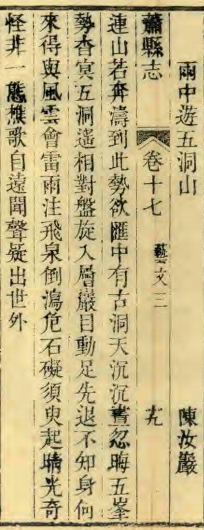 雨中遊五洞山 陳汝巖
蕭縣志 卷十七 藝文三 九
連山若奔濤到此勢欲匯中有古洞天沉沉晝忽晦五峯
勢杳冥五洞遙相對盤旋入層巖目動足先退不知身何
來得與風雲會雷雨注飛泉倒瀉危石礙須臾起晴光奇
怪井一態樵歌自遠聞聲疑出世外